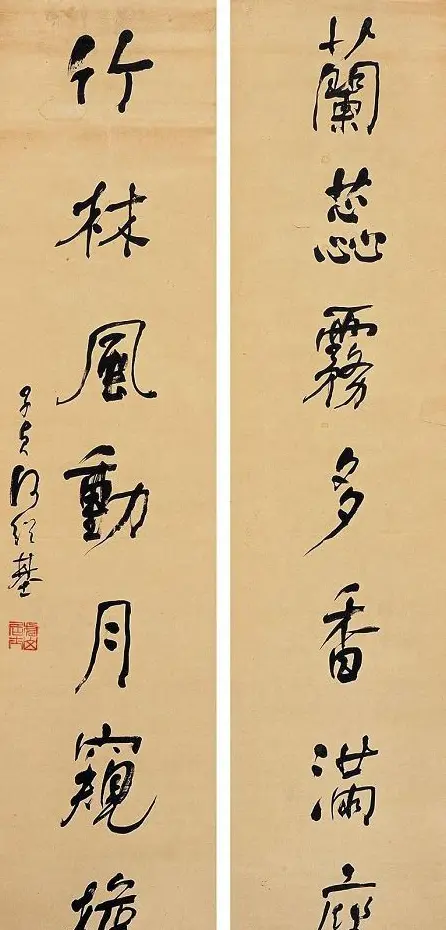 蘭蕊霧多香滿座
竹林風動月窺
子貞何紹基